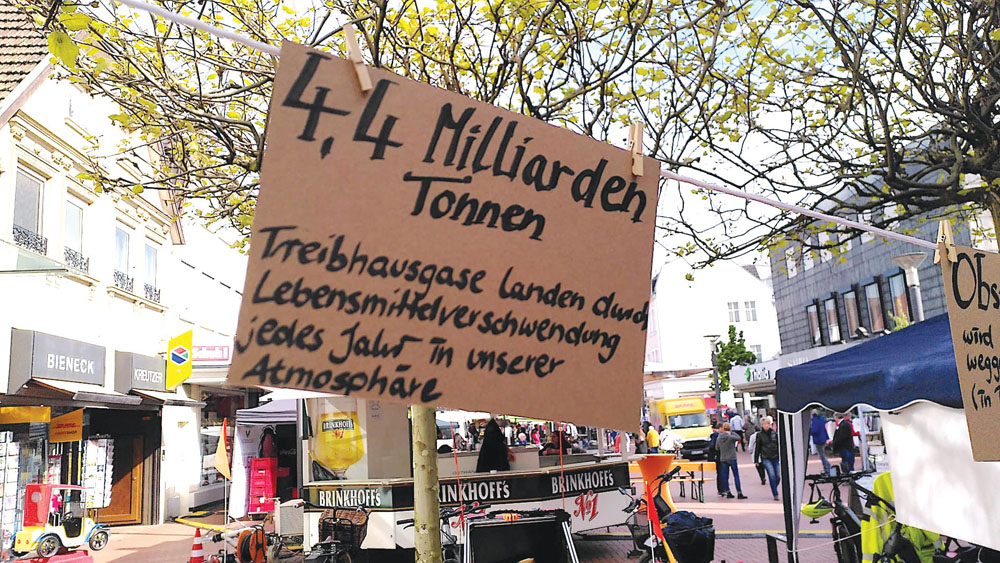 4,4 Milliarden
Tonnen
Treibhausgase landen durch
Lebensmittelverschwendung
jedes Jahr in unserer
Atmosphäre
Obs
wird
wegg
(in
BIENECK
KREUTZER
BRINKHOFF'S
BRINKHOFF'S
BRINKHOFF'S
BRINKHOFF'S
No1